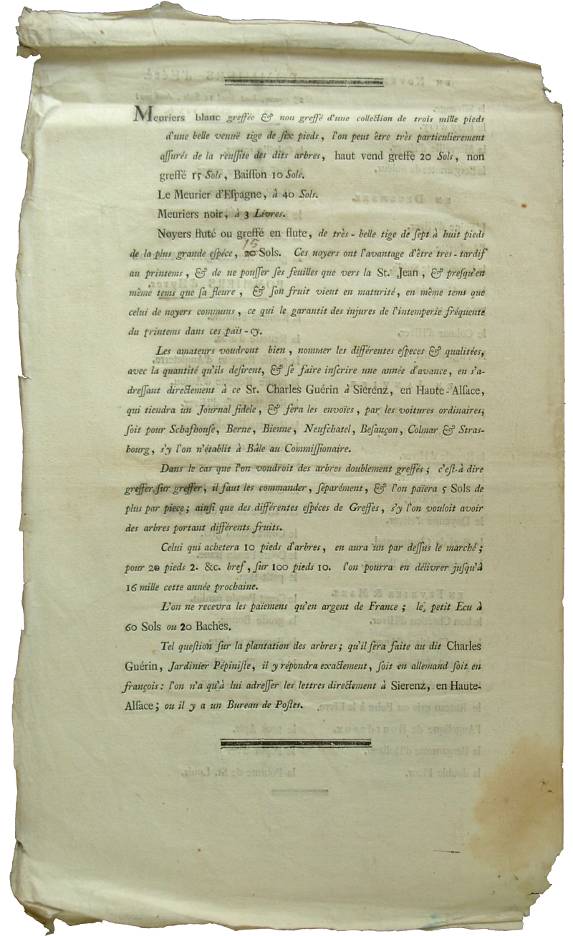 Meuriers blanc greffée & non greffé d'une collection de trois mille pieds
d'une belle venuë tige de six pieds, l'on peut être très particulierement
assurés de la réussite des dits arbres, haut vend greffé 20 Sols, non
greffé 15 Sols, Baisson 10 Sols.
Le Meurier d'Espagne, à 40 Sols.
Meuriers noir, à 3 Livres.
Noyers fluté ou greffé en flute, de très-belle tige de sept à huit pieds
15
de la plus grande espéce, 20 Sols. Ces noyers ont l'avantage d'être tres-tardif
au printems, & de ne pousser ses feuilles que vers la St. Jean, & presqu'en
même tems que sa fleure, & son fruit vient en maturité, en même tems que
celui de noyers communs, ce qui le garantit des injures de l'intemperie fréquente
du printems dans ces païs-cy.
Les amateurs voudront bien, nommer les différentes especes & qualitées,
avec la quantité qu'ils desirent, & se faire inscrire une année d'avance, en s'a-
dressant directement à ce Sr. Charles Guérin à Sierenz, en Haute-Alsace,
qui tiendra un Journal fidele, & fera les envoïes, par les voitures ordinaires,
soit pour Schafhouse, Berne, Bienne, Neufchatel, Besançon, Colmar & Stras-
bourg, s'y l'on n'établit à Bâle au Commissionaire.
Dans le cas que l'on voudroit des arbres doublement greffés; c'est-à dire
greffer sur greffer, il faut les commander, séparément, & l'on païera 5 Sols de
plus par piece; ainsi que des différentes espéces de Greffes, s'y l'on vouloit avoir
des arbres portant différents fruits.
Celui qui achetera 10 pieds d'arbres, en aura un par dessus le marché;
pour 20 pieds 2. &c. bref, sur 100 pieds 10. l'on pourra en délivrer jusqu'à
16 mille cette année prochaine.
L'on ne recevra les païemens qu'en argent de France; le petit Ecu à
60 Sols ou 20 Baches.
Tel question sur la plantation des arbres; qu'il sera faite au dit Charles
Guérin, Jardinier Pépiniste, il y répondra exactement, soit en allemand soit en
françois: l'on n'a qu'à lui adresser les lettres directement à Sierenz, en Haute-
Alsace; ou il y a un Bureau de Postes.